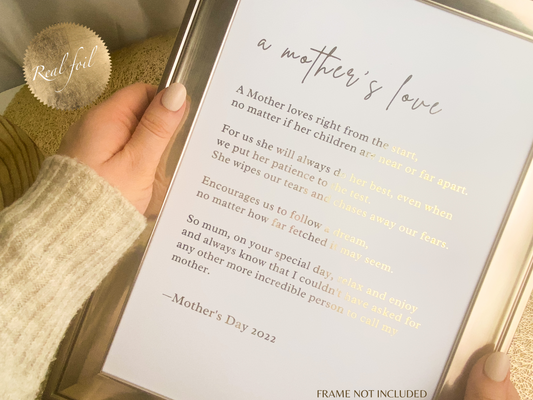 Real foil
a mother's love
A Mother loves right from the start,
no matter if her children are near or far apart.
For us she will always do her best, even when
we put her patience to the test.
She wipes our tears and chases away our fears.
Encourages us to follow a dream,
no matter how far fetched it may seem.
So mum, on your special day, relax and enjoy
and always know that I couldn't have asked for
any other more incredible person to call my
mother.
—Mother's Day 2022
FRAME NOT INCLUDED